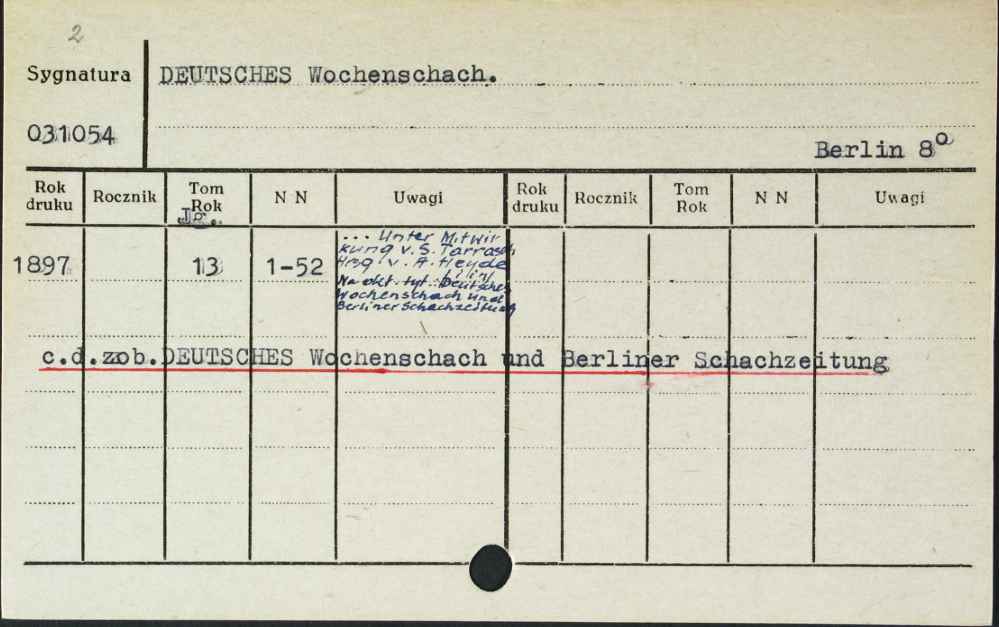 2
Sygnatura DEUTSCHES Wochenschach.
031054
Berlin 8°
Rok druku Rocznik Tom Rok N N Uwagi Rok druku Rocznik Tom Rok N N Uwagi
Jg.
1897 13 1-52
... Unter Mitwir
kung v. S. Tarrasch
Hrsg. v. A. Heyde
Na okł. tyt.: Deutsches
Wochenschach und
Berliner Schachzeitung
c.d.zob.DEUTSCHES Wochenschach und Berliner Schachzeitung